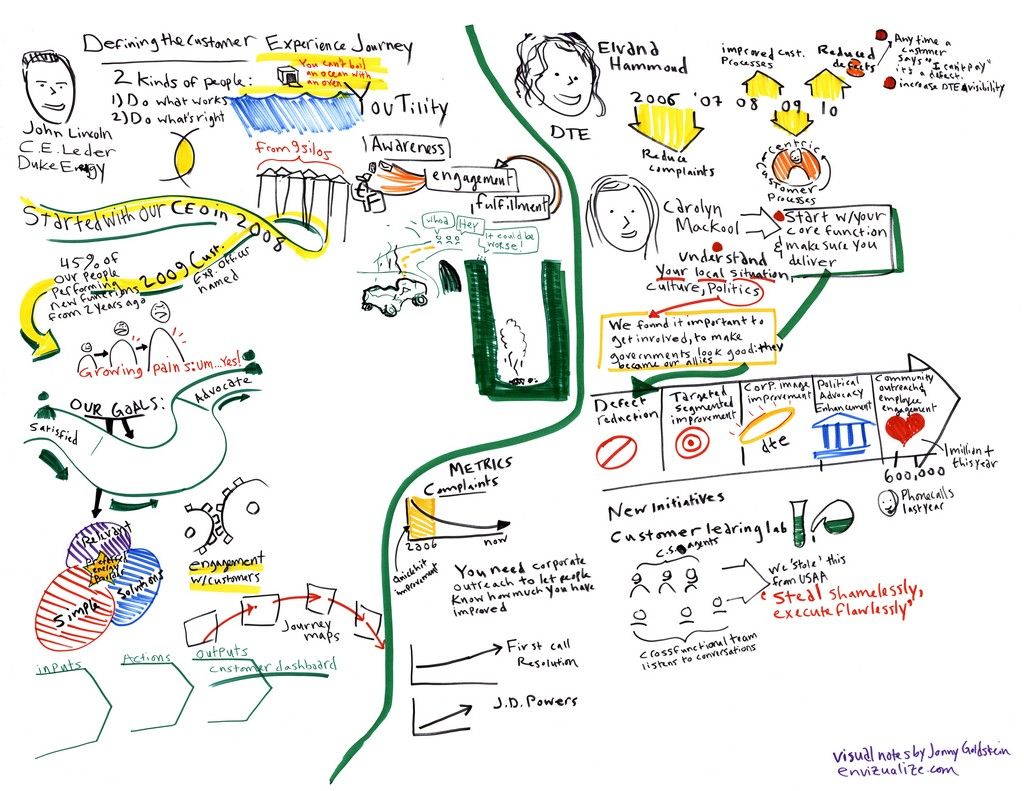 Defining the Customer Experience Journey
John Lincoln
C.E. Leder
Duke Energy
2 Kinds of people:
1) Do what works
2) Do what's right
You can't boil
an ocean with
an oven
YouTility
From 9 silos
Awareness
engagement
fulfillment
Whoa
Hey
it could be
worse!
Started with our CEO in 2008
2009 Cust.
exp. officer
named
45% of
our people
performing
new functions
from 2 years ago
Growing pains: um...Yes!
OUR GOALS:
Satisfied
Advocate
Relevant
Preferred
energy
Provider
Simple
Solutions
engagement
w/customers
Journey
maps
inputs
Actions
outputs
Customer dashboard
METRICS
Complaints
2006
now
improvement
You need corporate
outreach to let people
Know how much you have
improved
First call
Resolution
J.D. Powers
Elvana
Hammoud
DTE
improved cust.
Processes
Reduced
defects
Any time a
customer
says "I can't pay"
it's a defect.
increase DTE visibility
2006 '07 08 09 10
Reduce
complaints
centric
customer
Processes
Carolyn
Mackool
Start w/your
core function
& make sure you
deliver
understand
your local situation,
culture, Politics
We found it important to
get involved, to make
governments look good: they
became our allies
Defect
reduction
Targeted
segmented
improvement
Corp. image
improvement
dte
Political
Advocacy
Enhancement
Community
outreach, employee
engagement
1 million +
this year
600,000
Phonecalls
last year
New Initiatives
Customer learing lab
C.S. agents
Crossfunctional team
listens to conversations
We 'stole' this
from USAA
"Steal shamelessly,
execute flawlessly"
visual notes by Jonny Goldstein
envizualize.com